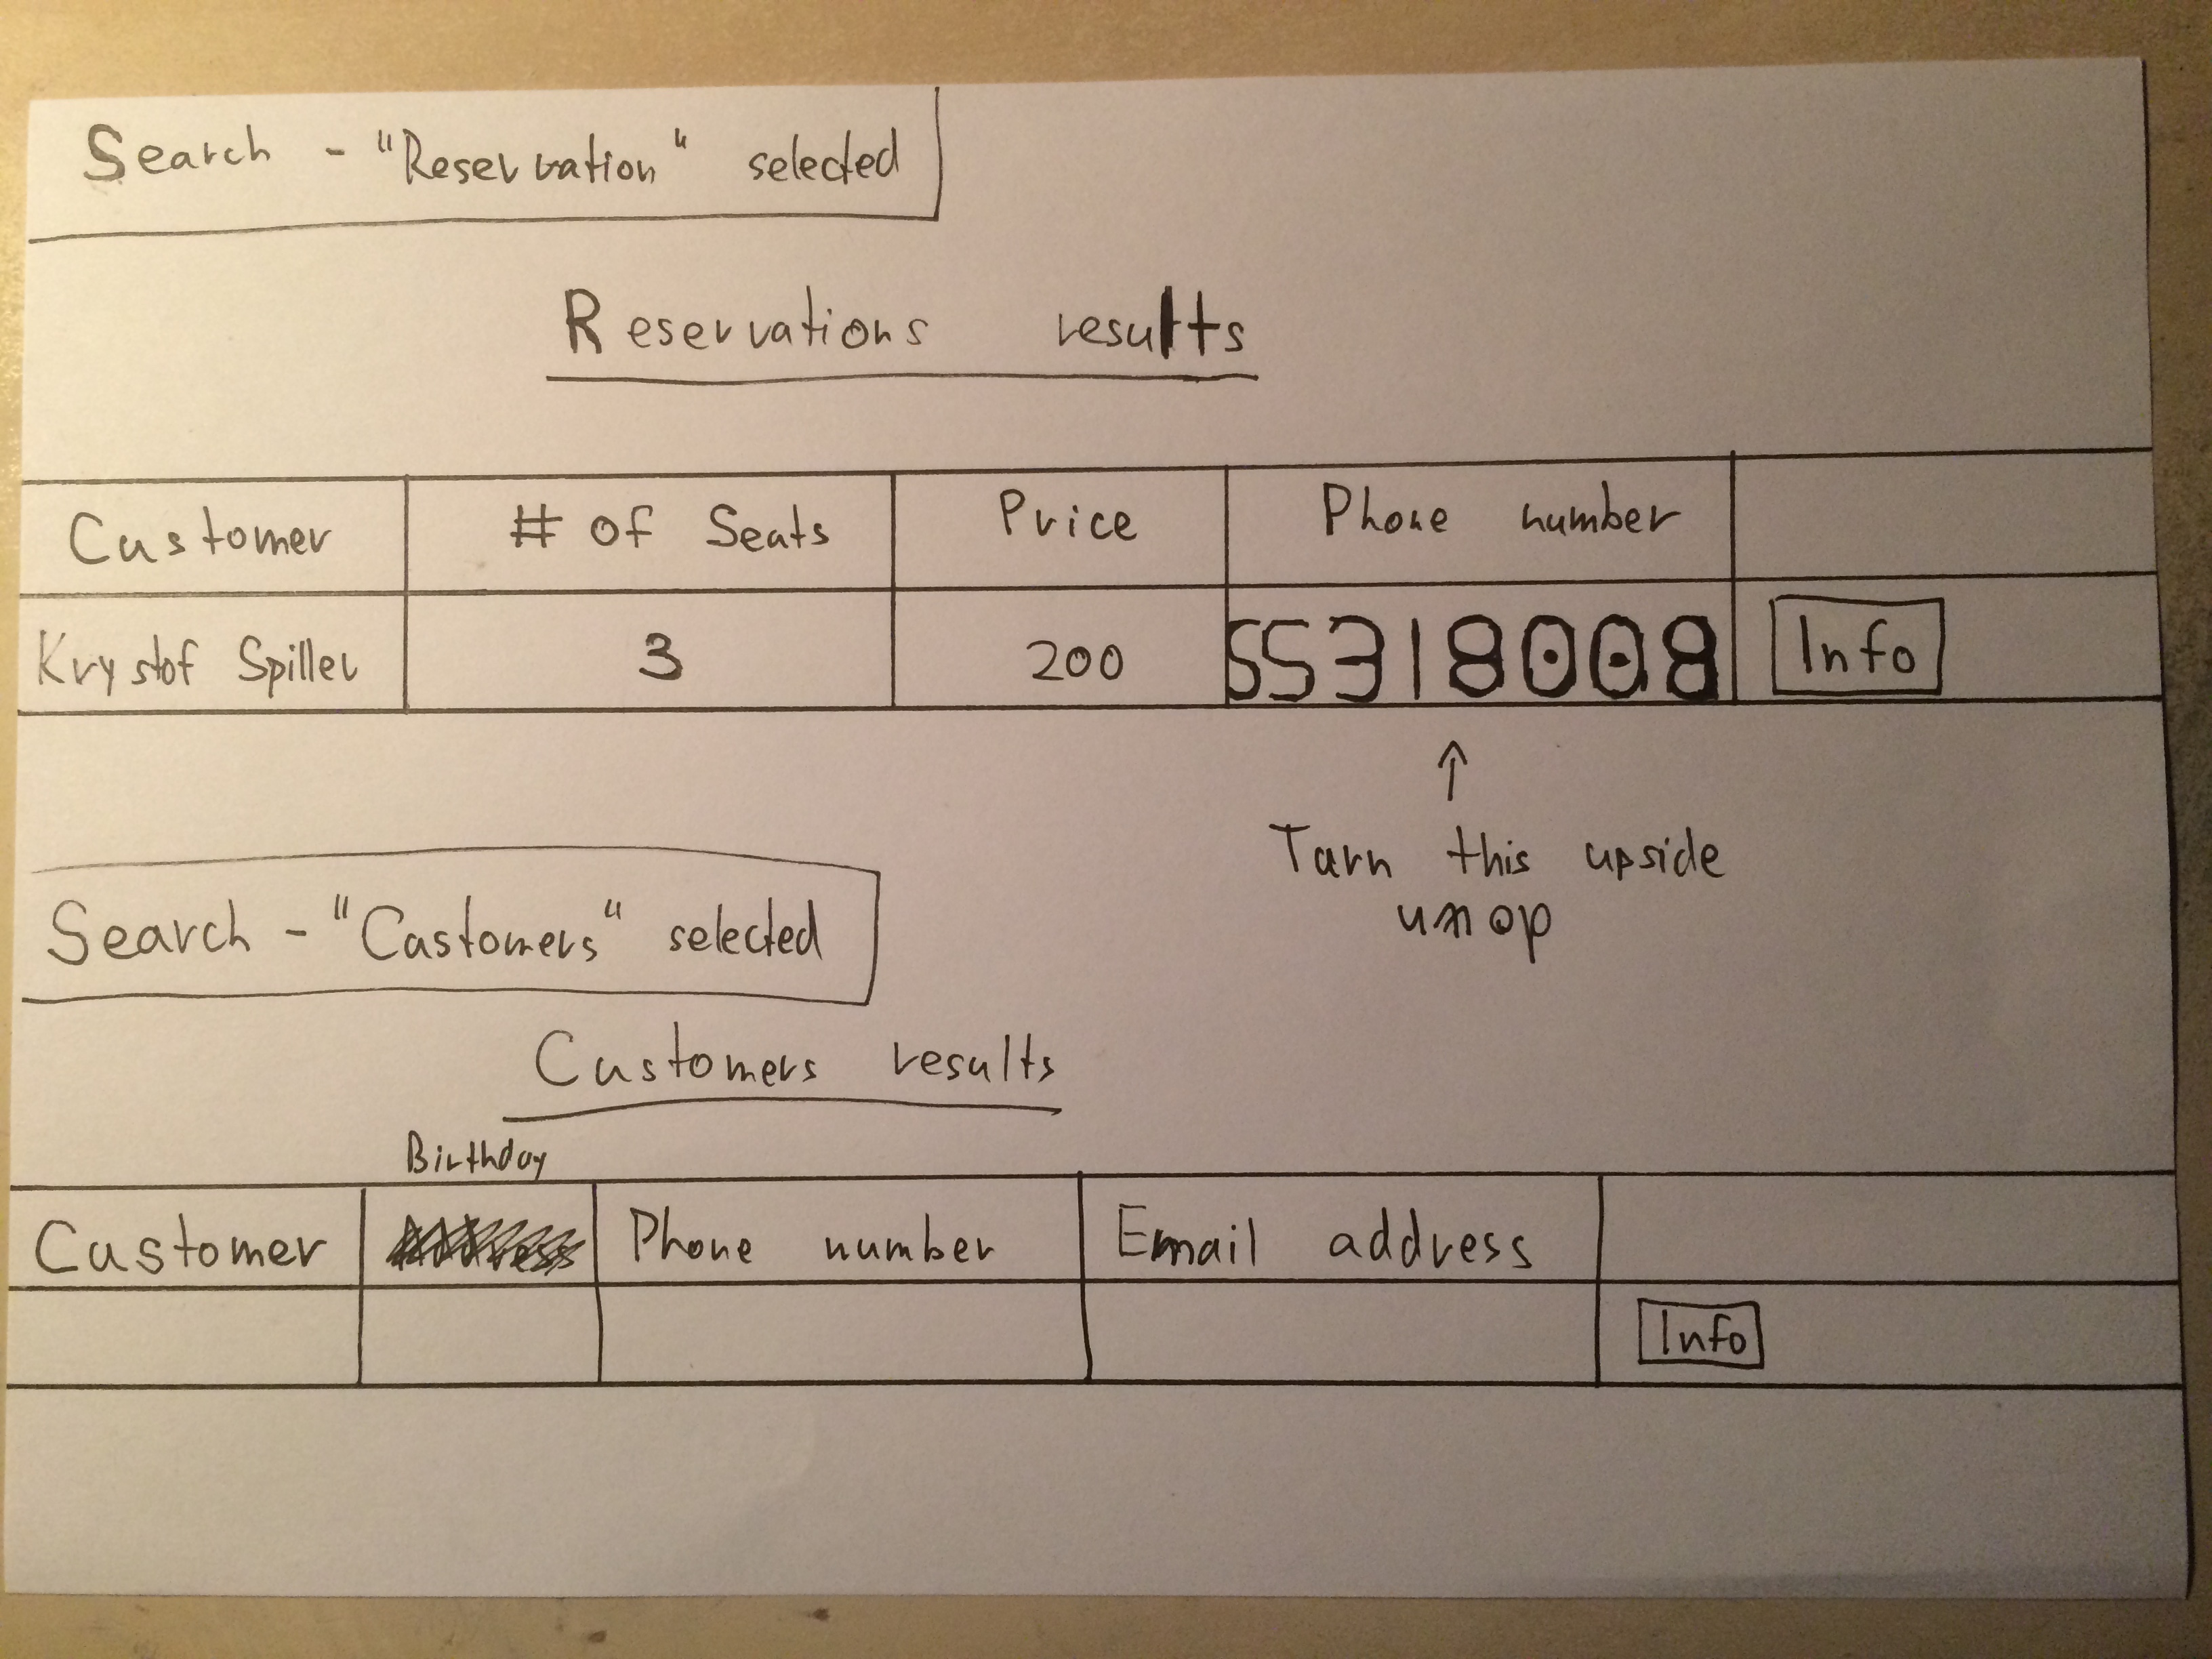 Search - "Reservation" selected
Reservations results
Customer # of Seats Price Phone number
Krystof Spiller 3 200 55318008 Info
↑
Turn this upside
uʍop
Search - "Customers" selected
Customers results
Birthday
Customer Address Phone number Email address
Info